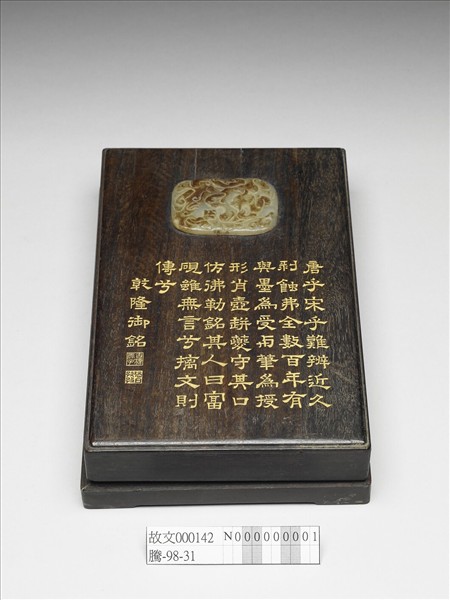 唐乎宋乎難辨近久
蝕弗全數百年有
與墨為受與筆為授
形肖壺缾守其口
仿彿勒銘其人曰富
硯雖無言兮摛文則
傳兮
乾隆御銘
故文000142 N000000001
騰-98-31